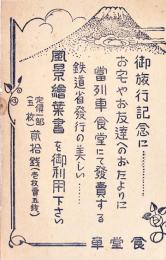 御旅行記念に…………
お宅やお友達へのおたよりに
當列車食堂にて發賣する
鉄道省發行の美しい……
風景繪葉書を御利用下さい
定價一部 貳拾銭(壱枚卋五銭)
(五枚)
食堂車